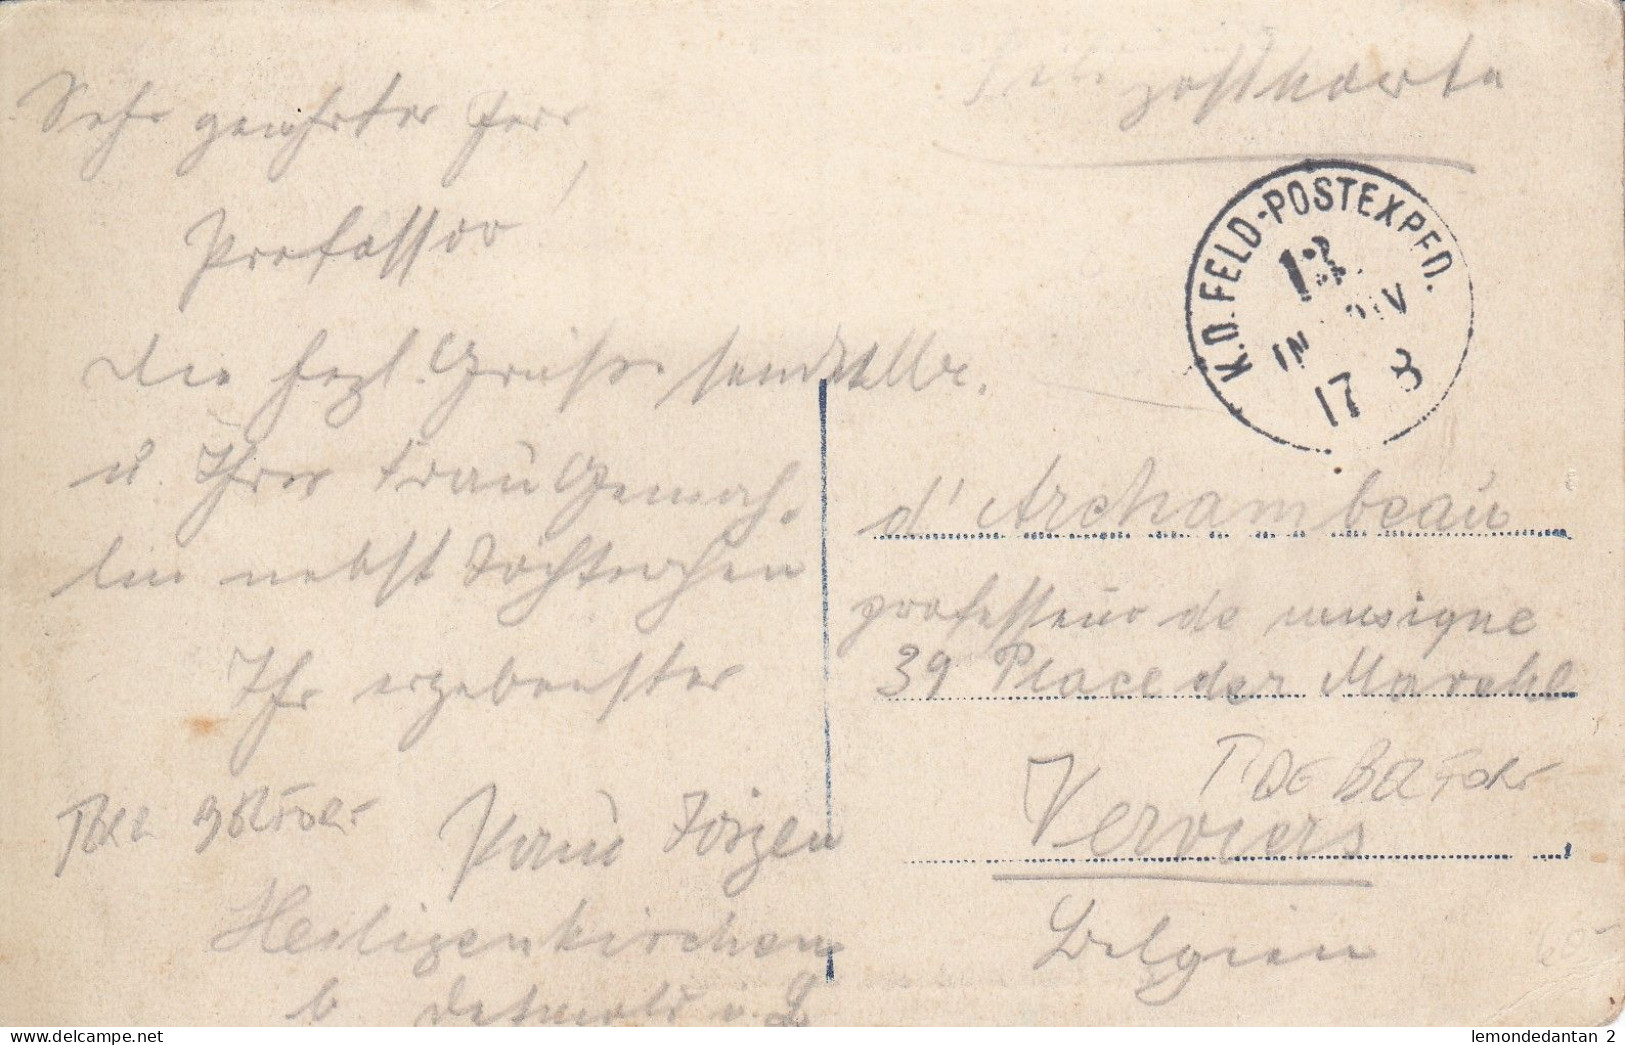 Sehr geehrter Herr
Professor!
Die hrzl. Grüße sendet Ihr.
u. Ihrer Frau Gemah-
lin nebst Töchterchen
Ihr ergebenster
Heiligenkirchen
b Detmold i. L
postkarte
K.D. FELD-POSTEXPED.
IN DIV
17 8
d'Archambeau
professeur de musique
39 Place der
Verviers
Belgien
lemondedantan 2